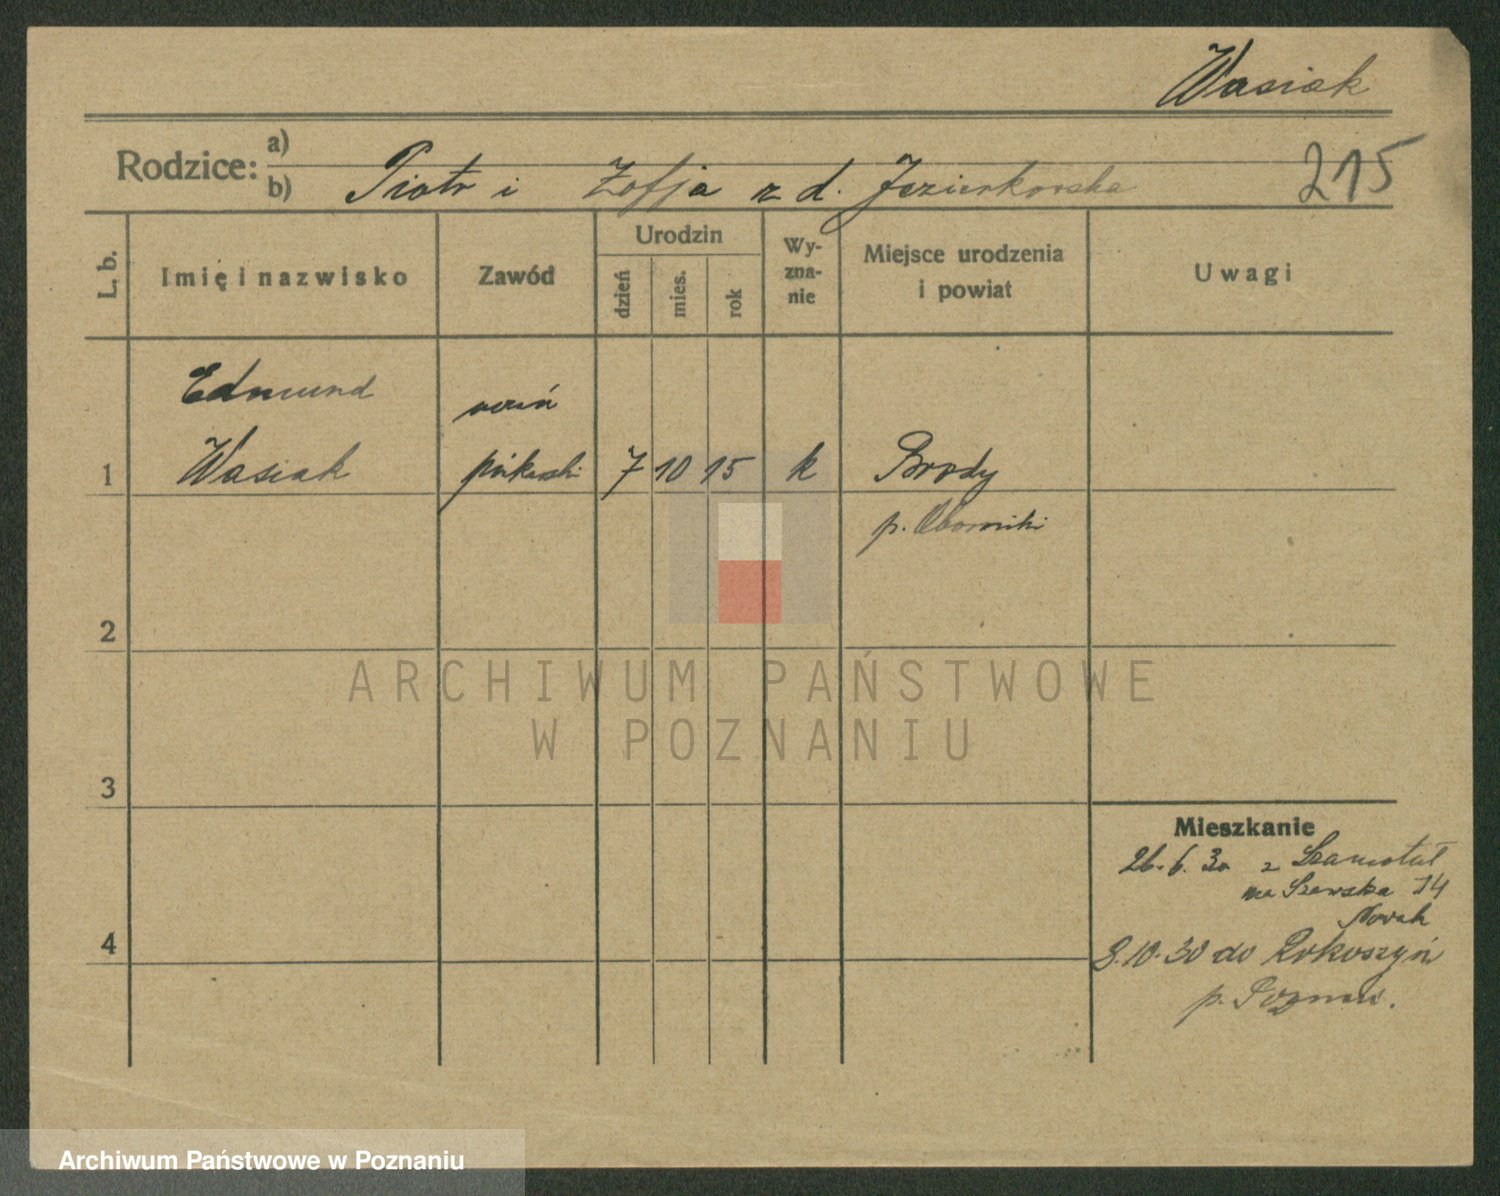 Wasiak
Rodzice: a)
b) Piotr i Zofja z d. Jezierkowska
215
L. b.
Imię i nazwisko
Zawód
Urodzin
dzień
mies.
rok
Wy-
zna-
nie
Miejsce urodzenia
i powiat
Uwagi
Edmund
uczeń
1 Wasiak piekarski 7 10 15 k Brody
p. Oborniki
2
ARCHIWUM PAŃSTWOWE
W POZNANIU
3
Mieszkanie
26.6.30 z Szamotuł
na Szewska 14
Nowak
4
8.10.30 do
p. Poznań.
Archiwum Państwowe w Poznaniu